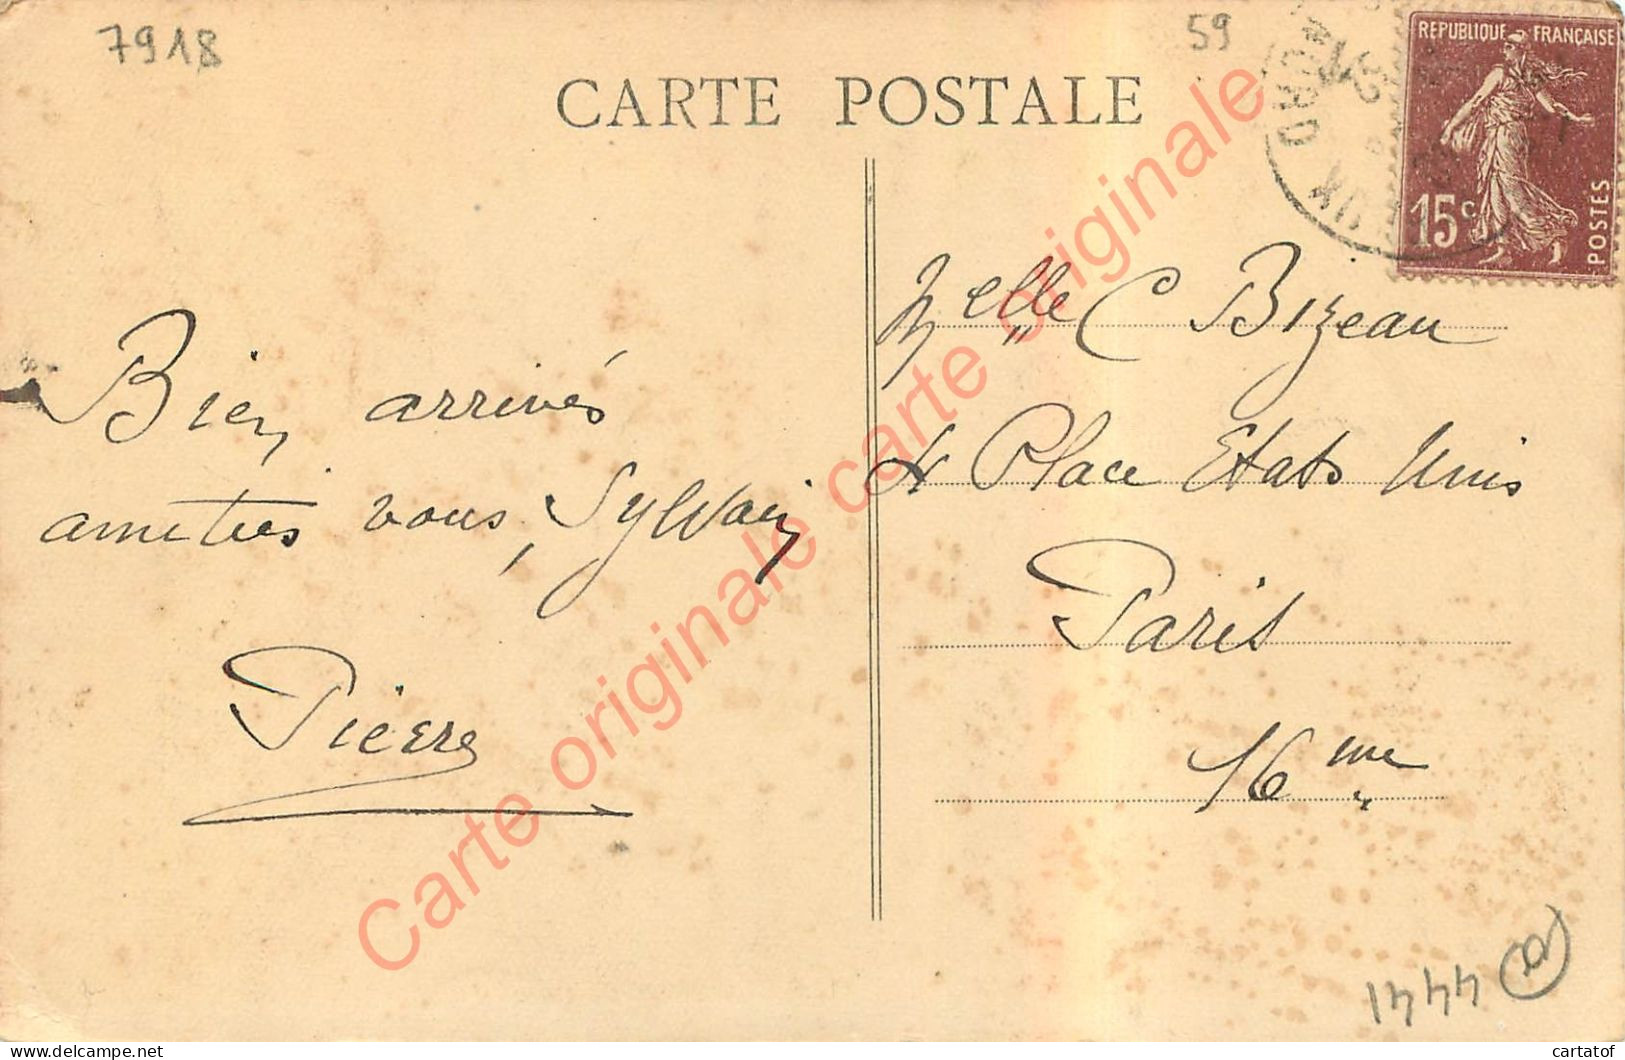 7918
59
CARTE POSTALE
REPUBLIQUE FRANÇAISE
15c
POSTES
Bien arrivés
amitiés vous, Sylvain
Pierre
Melle C Bizeau
4 Place Etats Unis
Paris
16me
1444
Carte originale carte originale
cartatof